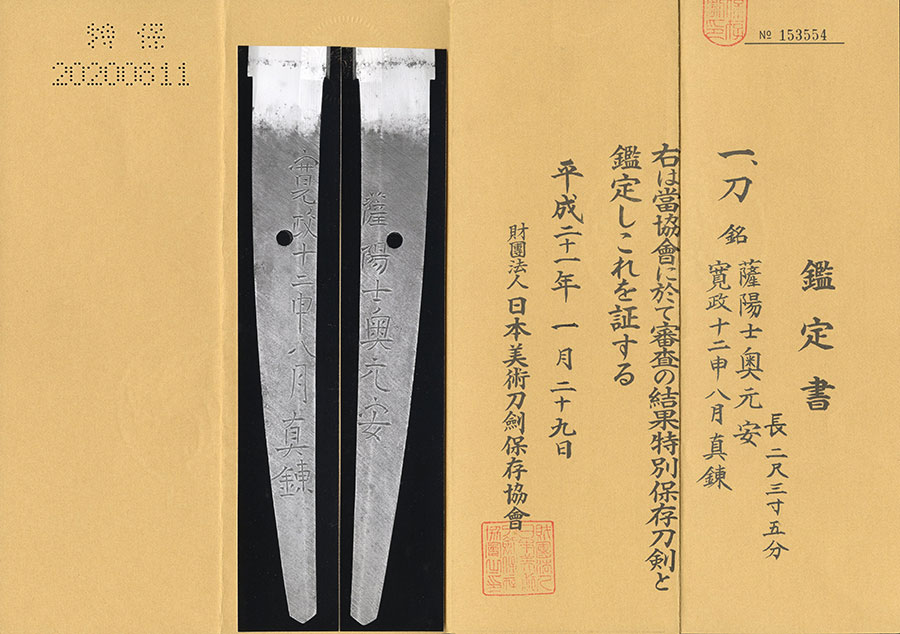 特保
20200811
寛政十二申八月真錬
薩陽士奥元安
№ 153554
鑑定書
一、刀 銘 薩陽士奥元安
寛政十二申八月真錬
長 二尺三寸五分
右は當協會に於て審査の結果特別保存刀剣と
鑑定しこれを証する
平成二十一年 一月二十九日
財團法人 日本美術刀劍保存協會